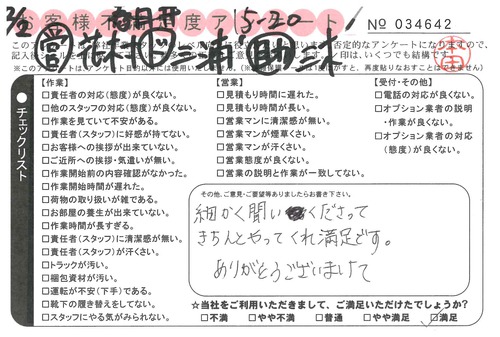 お客様不満度アンケート
No 034642
【作業】
□責任者の対応(態度)が良くない。
□他のスタッフの対応(態度)が良くない。
□作業を見ていて不安がある。
□責任者(スタッフ)に好感が持てない。
□お客様への挨拶が出来ていない。
□ご近所への挨拶・気遣いが無い。
□作業開始前の内容確認がなかった。
□作業開始時間が遅れた。
□荷物の取り扱いが雑である。
□お部屋の養生が出来ていない。
□作業時間が長すぎる。
□責任者(スタッフ)に清潔感が無い。
□責任者(スタッフ)が汗くさい。
□トラックが汚い。
□梱包資材が汚い。
□運転が不安(下手)である。
□靴下の履き替えをしてない。
□スタッフにやる気がみられない。
【営業】
□見積もり時間に遅れた。
□見積もり時間が長い。
□営業マンに清潔感が無い。
□営業マンが煙草くさい。
□営業マンが汗くさい。
□営業態度が良くない。
□営業の説明と作業が一致してない。
【受付・その他】
□電話の対応が良くない。
□オプション業者の説明
・作業が良くない。
□オプション業者の対応
(態度)が良くない。
チェックリスト
その他、ご意見・ご要望等ありましたらお書き下さい。
細かく聞いくださって
きちんとやってくれ満足です。
ありがとうございまして
☆当社をご利用いただきまして、ご満足いただけたでしょうか?
□不満 □やや不満 □普通 □やや満足 □満足